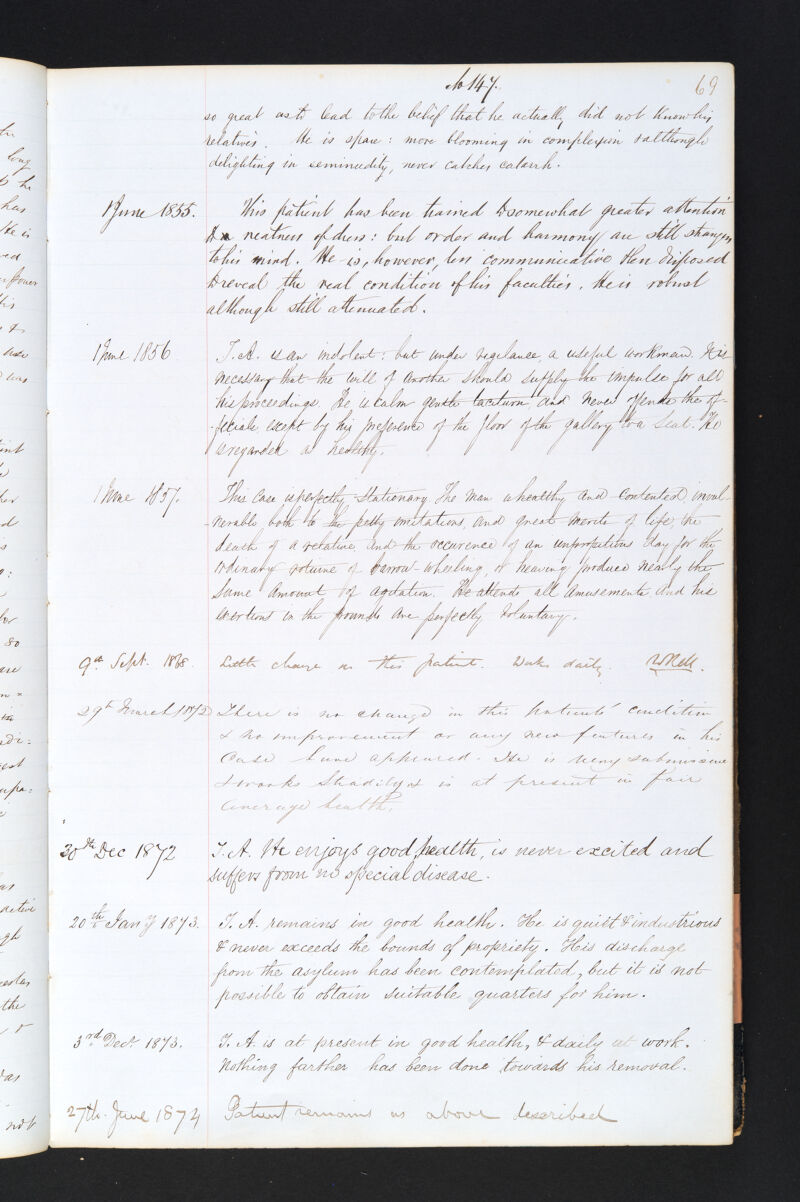 No 147. 69
so great as to lead to the belief that he actually did not know his
relatives. He is spare: more blooming in complexion & although
delighting in seminudity, never catches catarrh.
1 June 1855. This patient has been trained to somewhat greater attention
to neatness of dress: but order and harmony are still strangers
to his mind. He is, however, less communicative then disposed
to reveal the real condition of his faculties. He is robust
although still attenuated.
1 June 1856 T. A. is an indolent: but under vigilance, a useful workman. It is
necessary that the will of another should supply the impulse for all
his proceedings. He is calm gentle taciturn, and never offends the of-
-ficials except by his preference of the floor of the gallery to a seat. He
is regarded as healthy.
1 June 1857. This case is perfectly stationary. The man is healthy and contented, invul-
-nerable both to the petty irritations, and great events of life, the
death of a relative, and the occurence of an unpropitious day for the
ordinary routine of barrow-wheeling, or heaving produce nearly the
same amount of agitation. He attends all amusements and his
exertions in the grounds are perfectly voluntary.
9th Sept. 1868. Little change in this patient. Works daily.
29th March 1872 There is no change in this patients' condition
& no improvement or any new features in his
case have appeared. He is very submissive
& works steadily & is at present in fair
average health.
30th Dec 1872 T. A. He enjoys good health, is never excited and
suffers from no special disease.
20th Jany 1873. T. A. remains in good health. He is quiet & industrious
& never exceeds the bounds of propriety. His discharge
from the asylum has been contemplated, but it is not
possible to obtain suitable quarters for him.
3rd Decr 1873. T. A. is at present in good health, & daily at work.
Nothing farther has been done towards his removal.
27th June 1874 Patient remains as above described